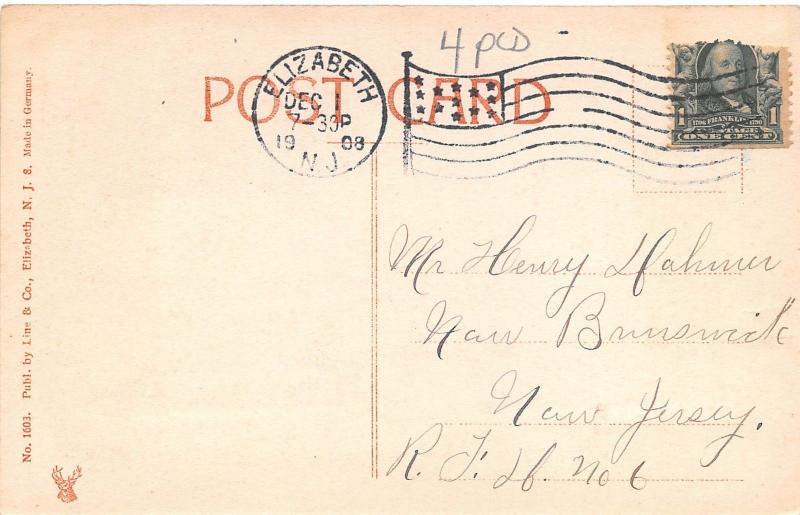 4 PCD
POST CARD
ELIZABETH
DEC 1
7-30P
19 08
N.J.
1 1
1706 FRANKLIN 1790
ONE CENT
Mr Henry Dahmer
New Brunswick
New Jersey.
R. F. D. No 6
No. 1603. Publ. by Line & Co., Elizabeth, N. J. S. Made in Germany.